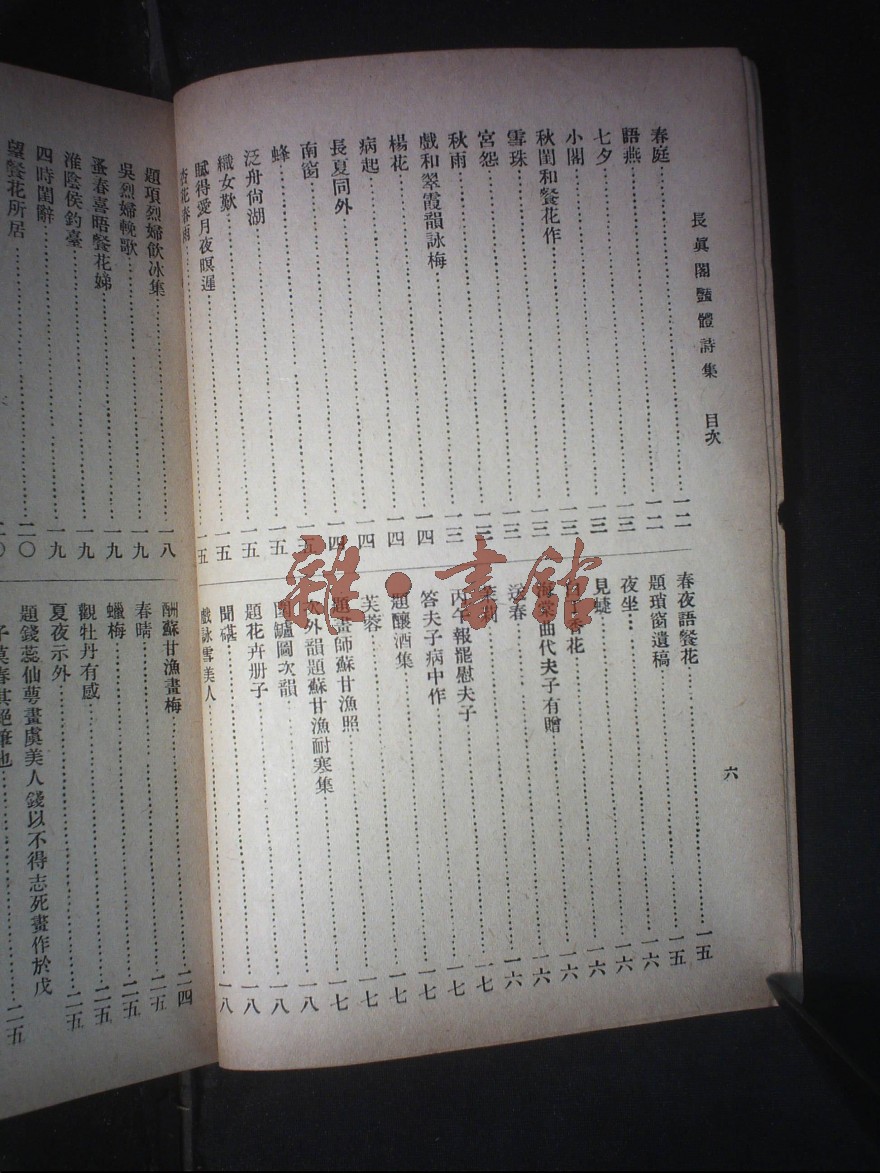 長眞閣豔體詩集 目次
六
春庭⋯⋯一二
語燕⋯⋯一二
七夕⋯⋯一三
小閣⋯⋯一三
秋閨和餐花作⋯⋯一三
雪珠⋯⋯一三
宮怨⋯⋯一三
秋雨⋯⋯一三
戲和翠霞韻詠梅⋯⋯一四
楊花⋯⋯一四
病起⋯⋯一四
長夏同外⋯⋯一四
南窗⋯⋯一五
蜂⋯⋯一五
泛舟尙湖⋯⋯一五
織女歎⋯⋯一五
賦得愛月夜暝遲⋯⋯一五
杏花春雨
春夜語餐花⋯⋯一五
題瑣窗遺稿⋯⋯一五
夜坐⋯⋯一六
見蜨⋯⋯一六
香花⋯⋯一六
海棠曲代夫子有贈⋯⋯一六
送春⋯⋯一六
茉莉⋯⋯一七
丙午報罷慰夫子⋯⋯一七
答夫子病中作⋯⋯一七
題釀酒集⋯⋯一七
芙蓉⋯⋯一七
題畫師蘇甘漁照⋯⋯一七
次外韻題蘇甘漁耐寒集⋯⋯一八
圍鑪圖次韻⋯⋯一八
題花卉册子⋯⋯一八
聞碪⋯⋯一八
戲詠雪美人
題項烈婦飲冰集⋯⋯一八
吳烈婦輓歌⋯⋯一九
蚤春喜晤餐花娣⋯⋯一九
淮陰侯釣臺⋯⋯一九
四時閨辭⋯⋯二〇
望餐花所居⋯⋯二〇
酬蘇甘漁畫梅⋯⋯二四
春晴⋯⋯二五
蠟梅⋯⋯二五
觀牡丹有感⋯⋯二五
夏夜示外⋯⋯二五
題錢蕊仙蕚畫虞美人錢以不得志死畫作於戊
子莫春其絕筆也⋯⋯二五
雜·書館